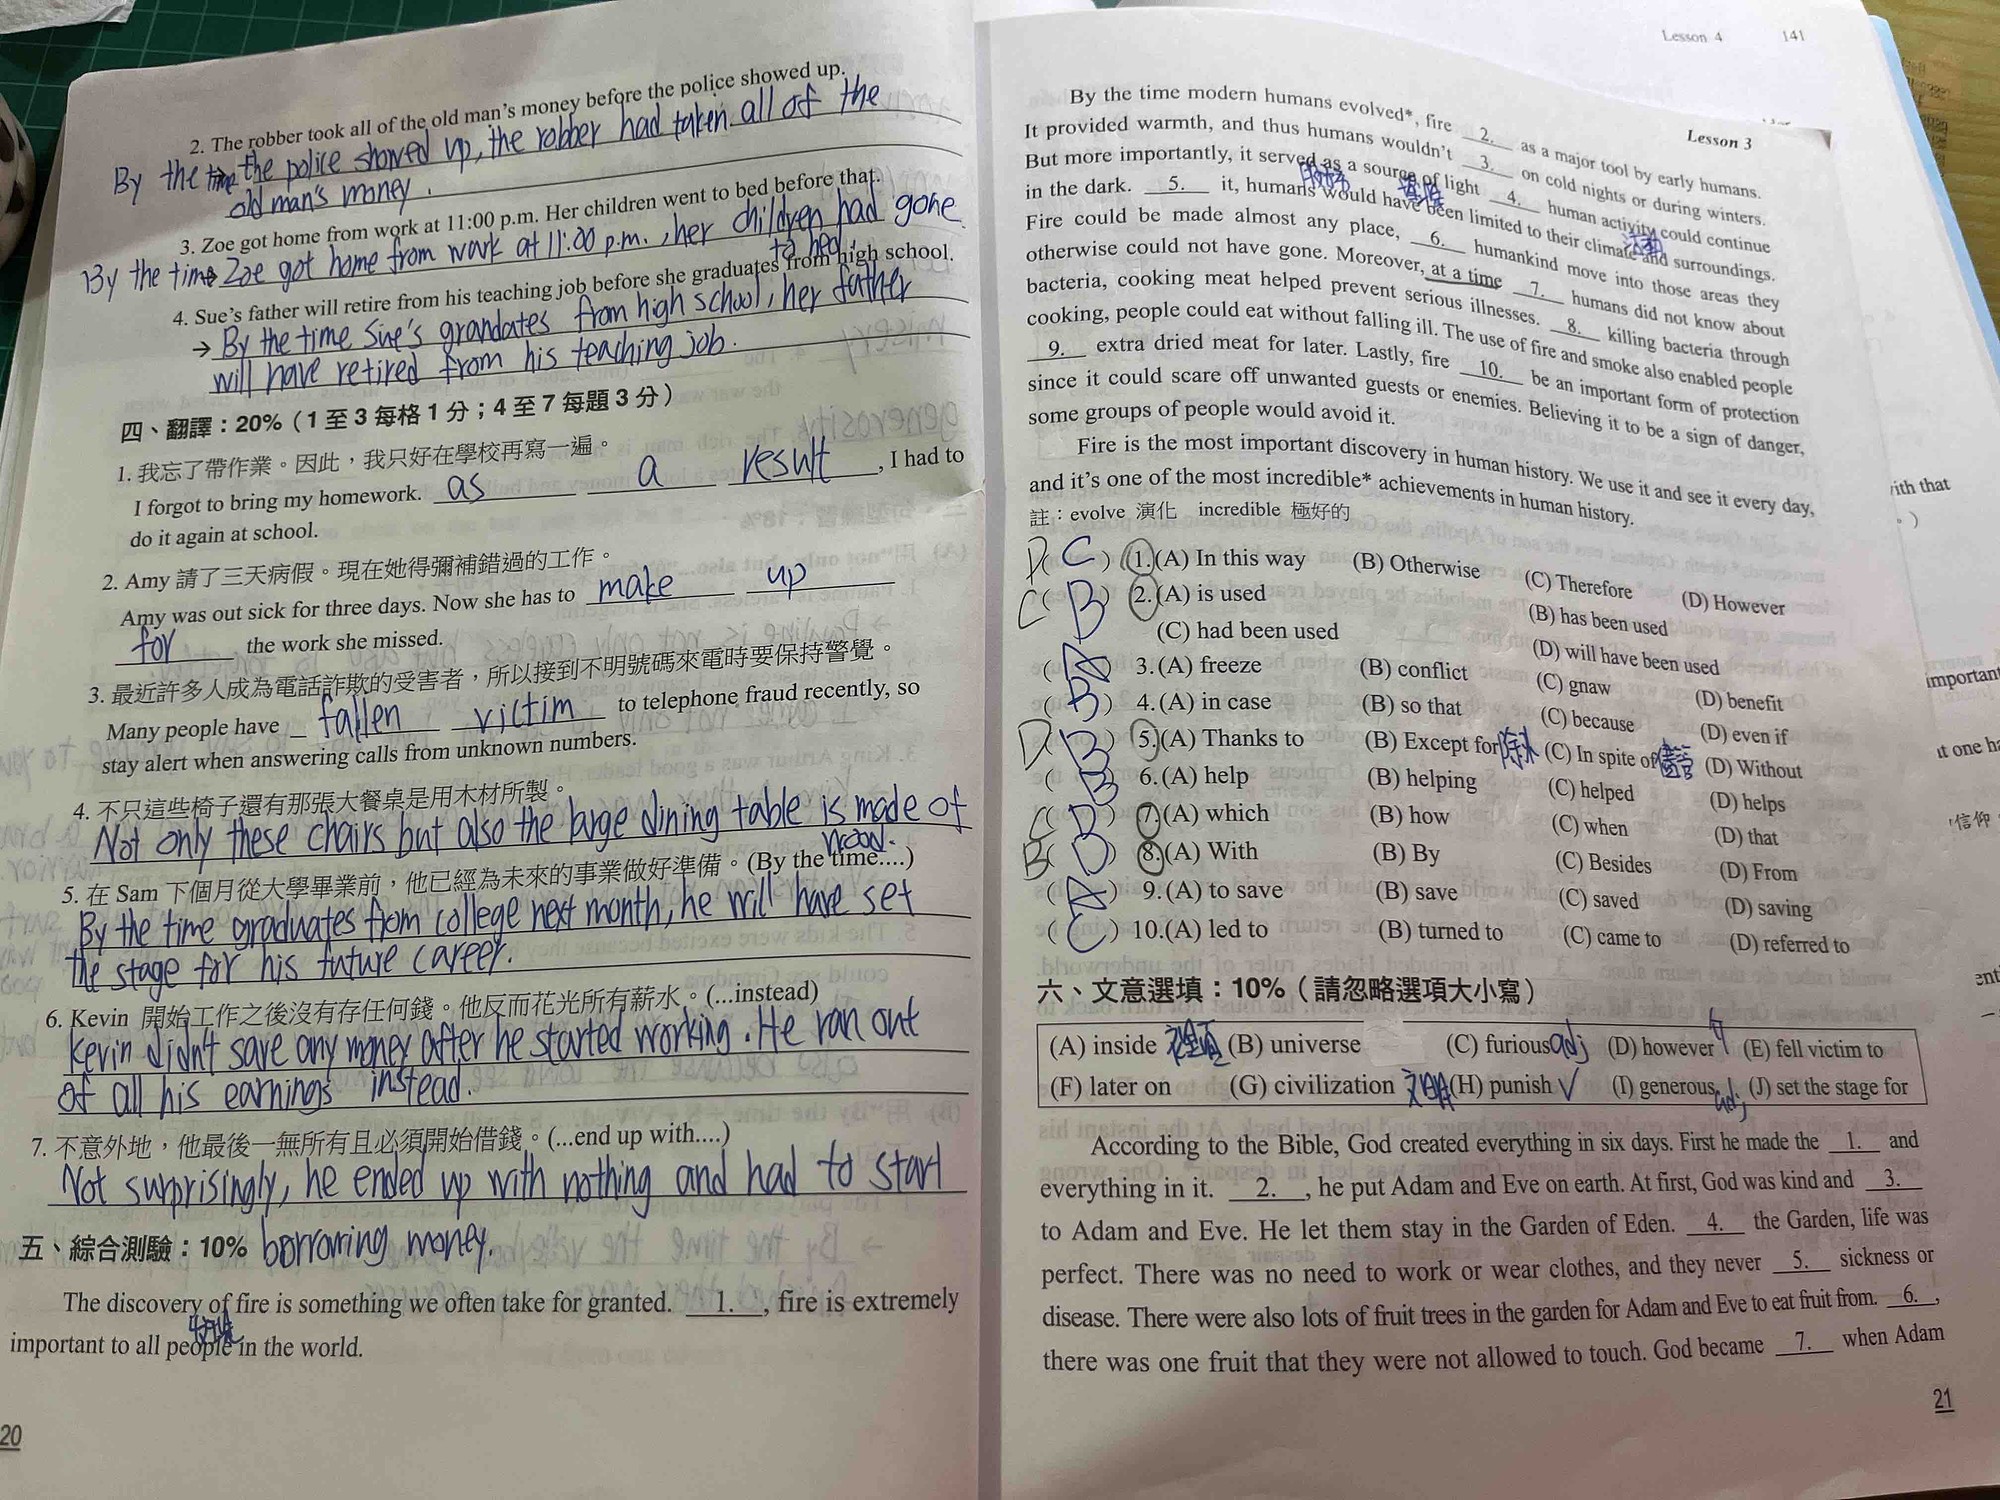 2. The robber took all of the old man's money before the police showed up.
By the time the police showed up, the robber had taken all of the
old man's money.
3. Zoe got home from work at 11:00 p.m. Her children went to bed before that.
By the time Zoe got home from work at 11:00 p.m., her children had gone
to bed.
4. Sue's father will retire from his teaching job before she graduates from high school.
→ By the time Sue's grandates from high school, her father
will have retired from his teaching job.
四、翻譯：20%（1 至 3 每格 1 分；4 至 7 每題 3 分）
1. 我忘了帶作業。因此，我只好在學校再寫一遍。
I forgot to bring my homework. as a result, I had to
do it again at school.
2. Amy 請了三天病假。現在她得彌補錯過的工作。
Amy was out sick for three days. Now she has to make up
for the work she missed.
3. 最近許多人成為電話詐欺的受害者，所以接到不明號碼來電時要保持警覺。
Many people have fallen victim to telephone fraud recently, so
stay alert when answering calls from unknown numbers.
4. 不只這些椅子還有那張大餐桌是用木材所製。
Not only these chairs but also the large dining table is made of
wood.
5. 在 Sam 下個月從大學畢業前，他已經為未來的事業做好準備。(By the time....)
By the time graduates from college next month, he will have set
the stage for his future career.
6. Kevin 開始工作之後沒有存任何錢。他反而花光所有薪水。(...instead)
Kevin didn't save any money after he started working. He ran out
of all his earnings instead.
7. 不意外地，他最後一無所有且必須開始借錢。(...end up with....)
Not surprisingly, he ended up with nothing and had to start
borrowing money.
五、綜合測驗：10%
The discovery of fire is something we often take for granted. 1. , fire is extremely
important to all people in the world.
20
Lesson 4 141
Lesson 3
By the time modern humans evolved*, fire 2. as a major tool by early humans.
It provided warmth, and thus humans wouldn't 3. on cold nights or during winters.
But more importantly, it served as a source of light 4. human activity could continue
in the dark. 5. it, humans would have been limited to their climate and surroundings.
Fire could be made almost any place, 6. humankind move into those areas they
otherwise could not have gone. Moreover, at a time 7. humans did not know about
bacteria, cooking meat helped prevent serious illnesses. 8. killing bacteria through
cooking, people could eat without falling ill. The use of fire and smoke also enabled people
9. extra dried meat for later. Lastly, fire 10. be an important form of protection
since it could scare off unwanted guests or enemies. Believing it to be a sign of danger,
some groups of people would avoid it.
Fire is the most important discovery in human history. We use it and see it every day,
and it's one of the most incredible* achievements in human history.
註：evolve 演化 incredible 極好的
D ( C ) 1. (A) In this way (B) Otherwise (C) Therefore (D) However
C ( B ) 2. (A) is used (B) has been used
(C) had been used (D) will have been used
( A ) 3. (A) freeze (B) conflict (C) gnaw (D) benefit
( B ) 4. (A) in case (B) so that (C) because (D) even if
D ( B ) 5. (A) Thanks to (B) Except for (C) In spite of (D) Without
( B ) 6. (A) help (B) helping (C) helped (D) helps
C ( D ) 7. (A) which (B) how (C) when (D) that
B ( D ) 8. (A) With (B) By (C) Besides (D) From
( A ) 9. (A) to save (B) save (C) saved (D) saving
( C ) 10. (A) led to (B) turned to (C) came to (D) referred to
六、文意選填：10%（請忽略選項大小寫）
(A) inside (B) universe (C) furious adj (D) however (E) fell victim to
(F) later on (G) civilization 文明 (H) punish V (I) generous adj (J) set the stage for
According to the Bible, God created everything in six days. First he made the 1. and
everything in it. 2. , he put Adam and Eve on earth. At first, God was kind and 3.
to Adam and Eve. He let them stay in the Garden of Eden. 4. the Garden, life was
perfect. There was no need to work or wear clothes, and they never 5. sickness or
disease. There were also lots of fruit trees in the garden for Adam and Eve to eat fruit from. 6. ,
there was one fruit that they were not allowed to touch. God became 7. when Adam
21
with that
important
信仰